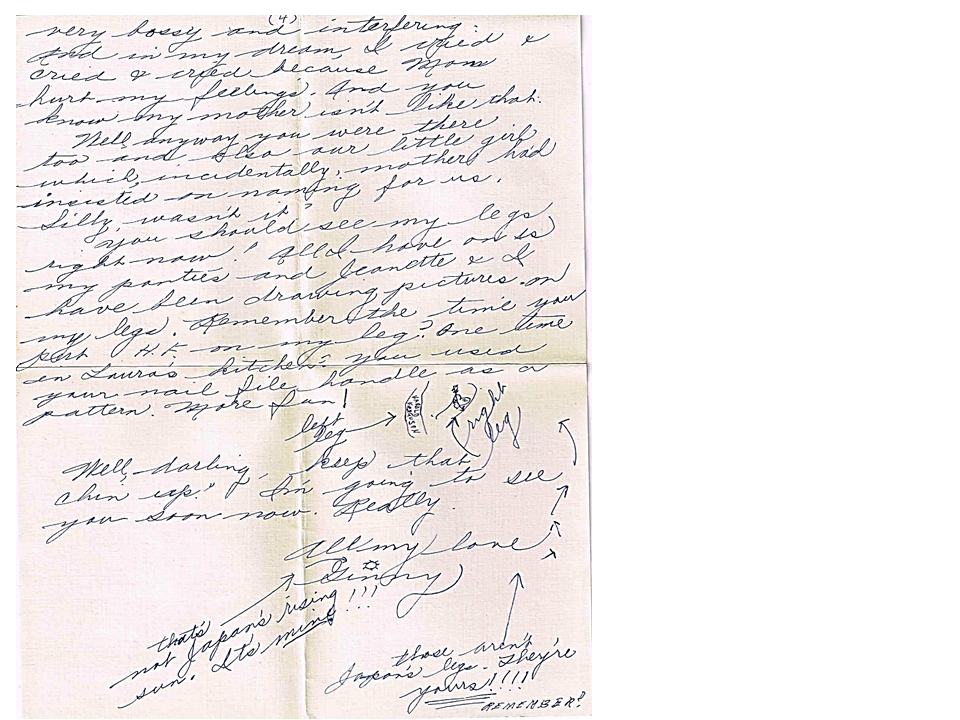 (4)
very bossy and interfering.
And in my dream, I cried &
cried & cried because Mom
hurt my feelings. And you
know my mother isn't like that.
Well, anyway you were there
too and also our little girl
which, incidentally, mother had
insisted on naming for us.
Silly, wasn't it?
You should see my legs
right now! All I have on is
my panties and Jeanette & I
have been drawing pictures on
my legs. Remember the time you
put H.F. on my leg? One time
in Laura's kitchen? You used
your nail file handle as a
pattern. More fun!
left leg
HAROLD FERGUSON
right leg
Well, darling, keep that
chin up! I'm going to see
you soon now. Really.
All my love
Ginny
that's
not Japan's rising !!!
sun. It's mine
those aren't
Japan's legs. They're
yours!!!!
REMEMBER?